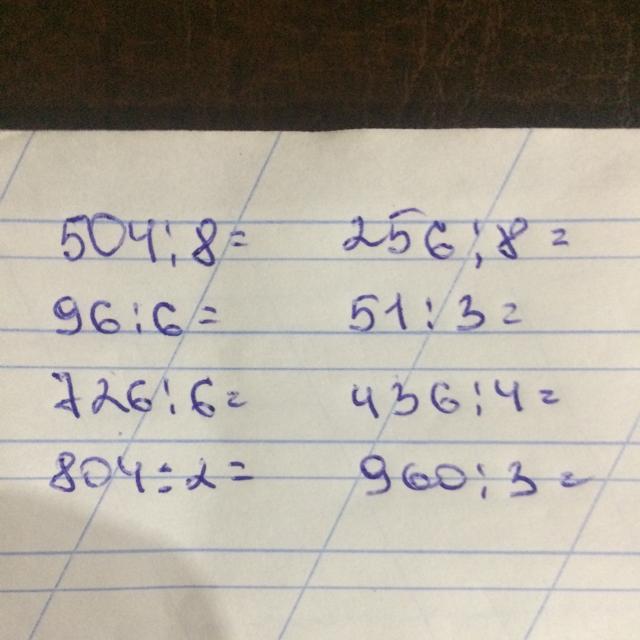 504:8= 256:8=
96:6= 51:3=
726:6= 436:4=
804:2= 960:3=